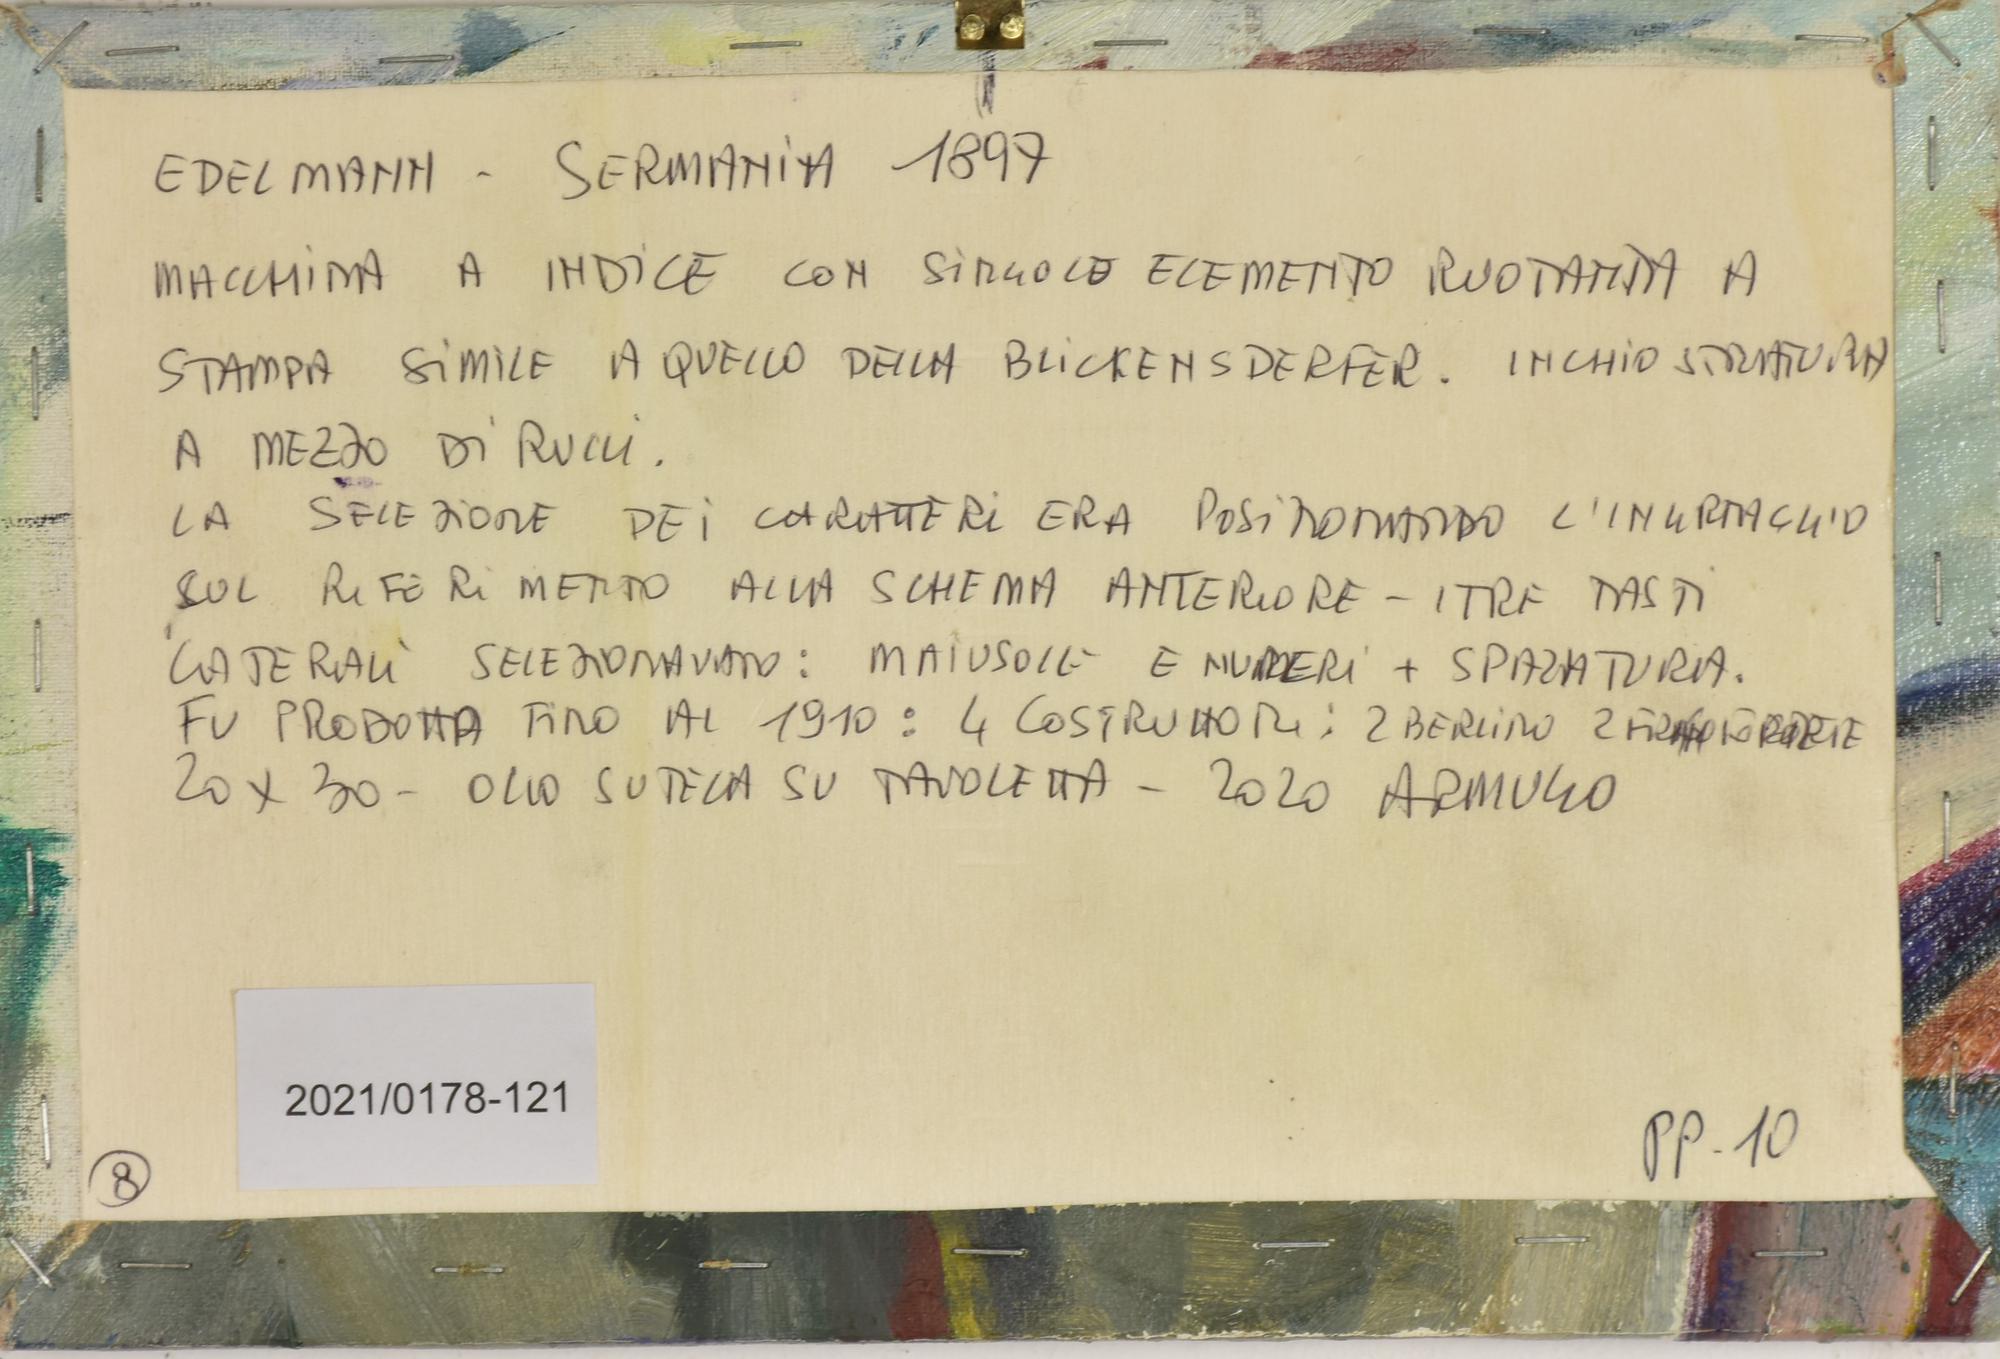 EDELMANN - GERMANIA 1897
MACCHINA A INDICE CON SINGOLO ELEMENTO RUOTANTA A
STAMPA SIMILE A QUELLO DELLA BLICKENSDERFER. INCHIOSTRATURA
A MEZZO DI RULLI.
LA SELEZIONE DEI CARATTERI ERA POSIZIONANDO L'INGRANAGGIO
SUL RIFERIMENTO ALLA SCHEMA ANTERIORE - I TRE TASTI
LATERALI SELEZIONAVANO: MAIUSOLE E NUMERI + SPAZIATURA.
FU PRODOTTA FINO AL 1910: 4 COSTRUTTORI: 2 BERLINO 2 FRANCOFORTE
20 X 30 - OLIO SU TELA SU TAVOLETTA - 2020 ARMUGO
2021/0178-121
8
PP-10